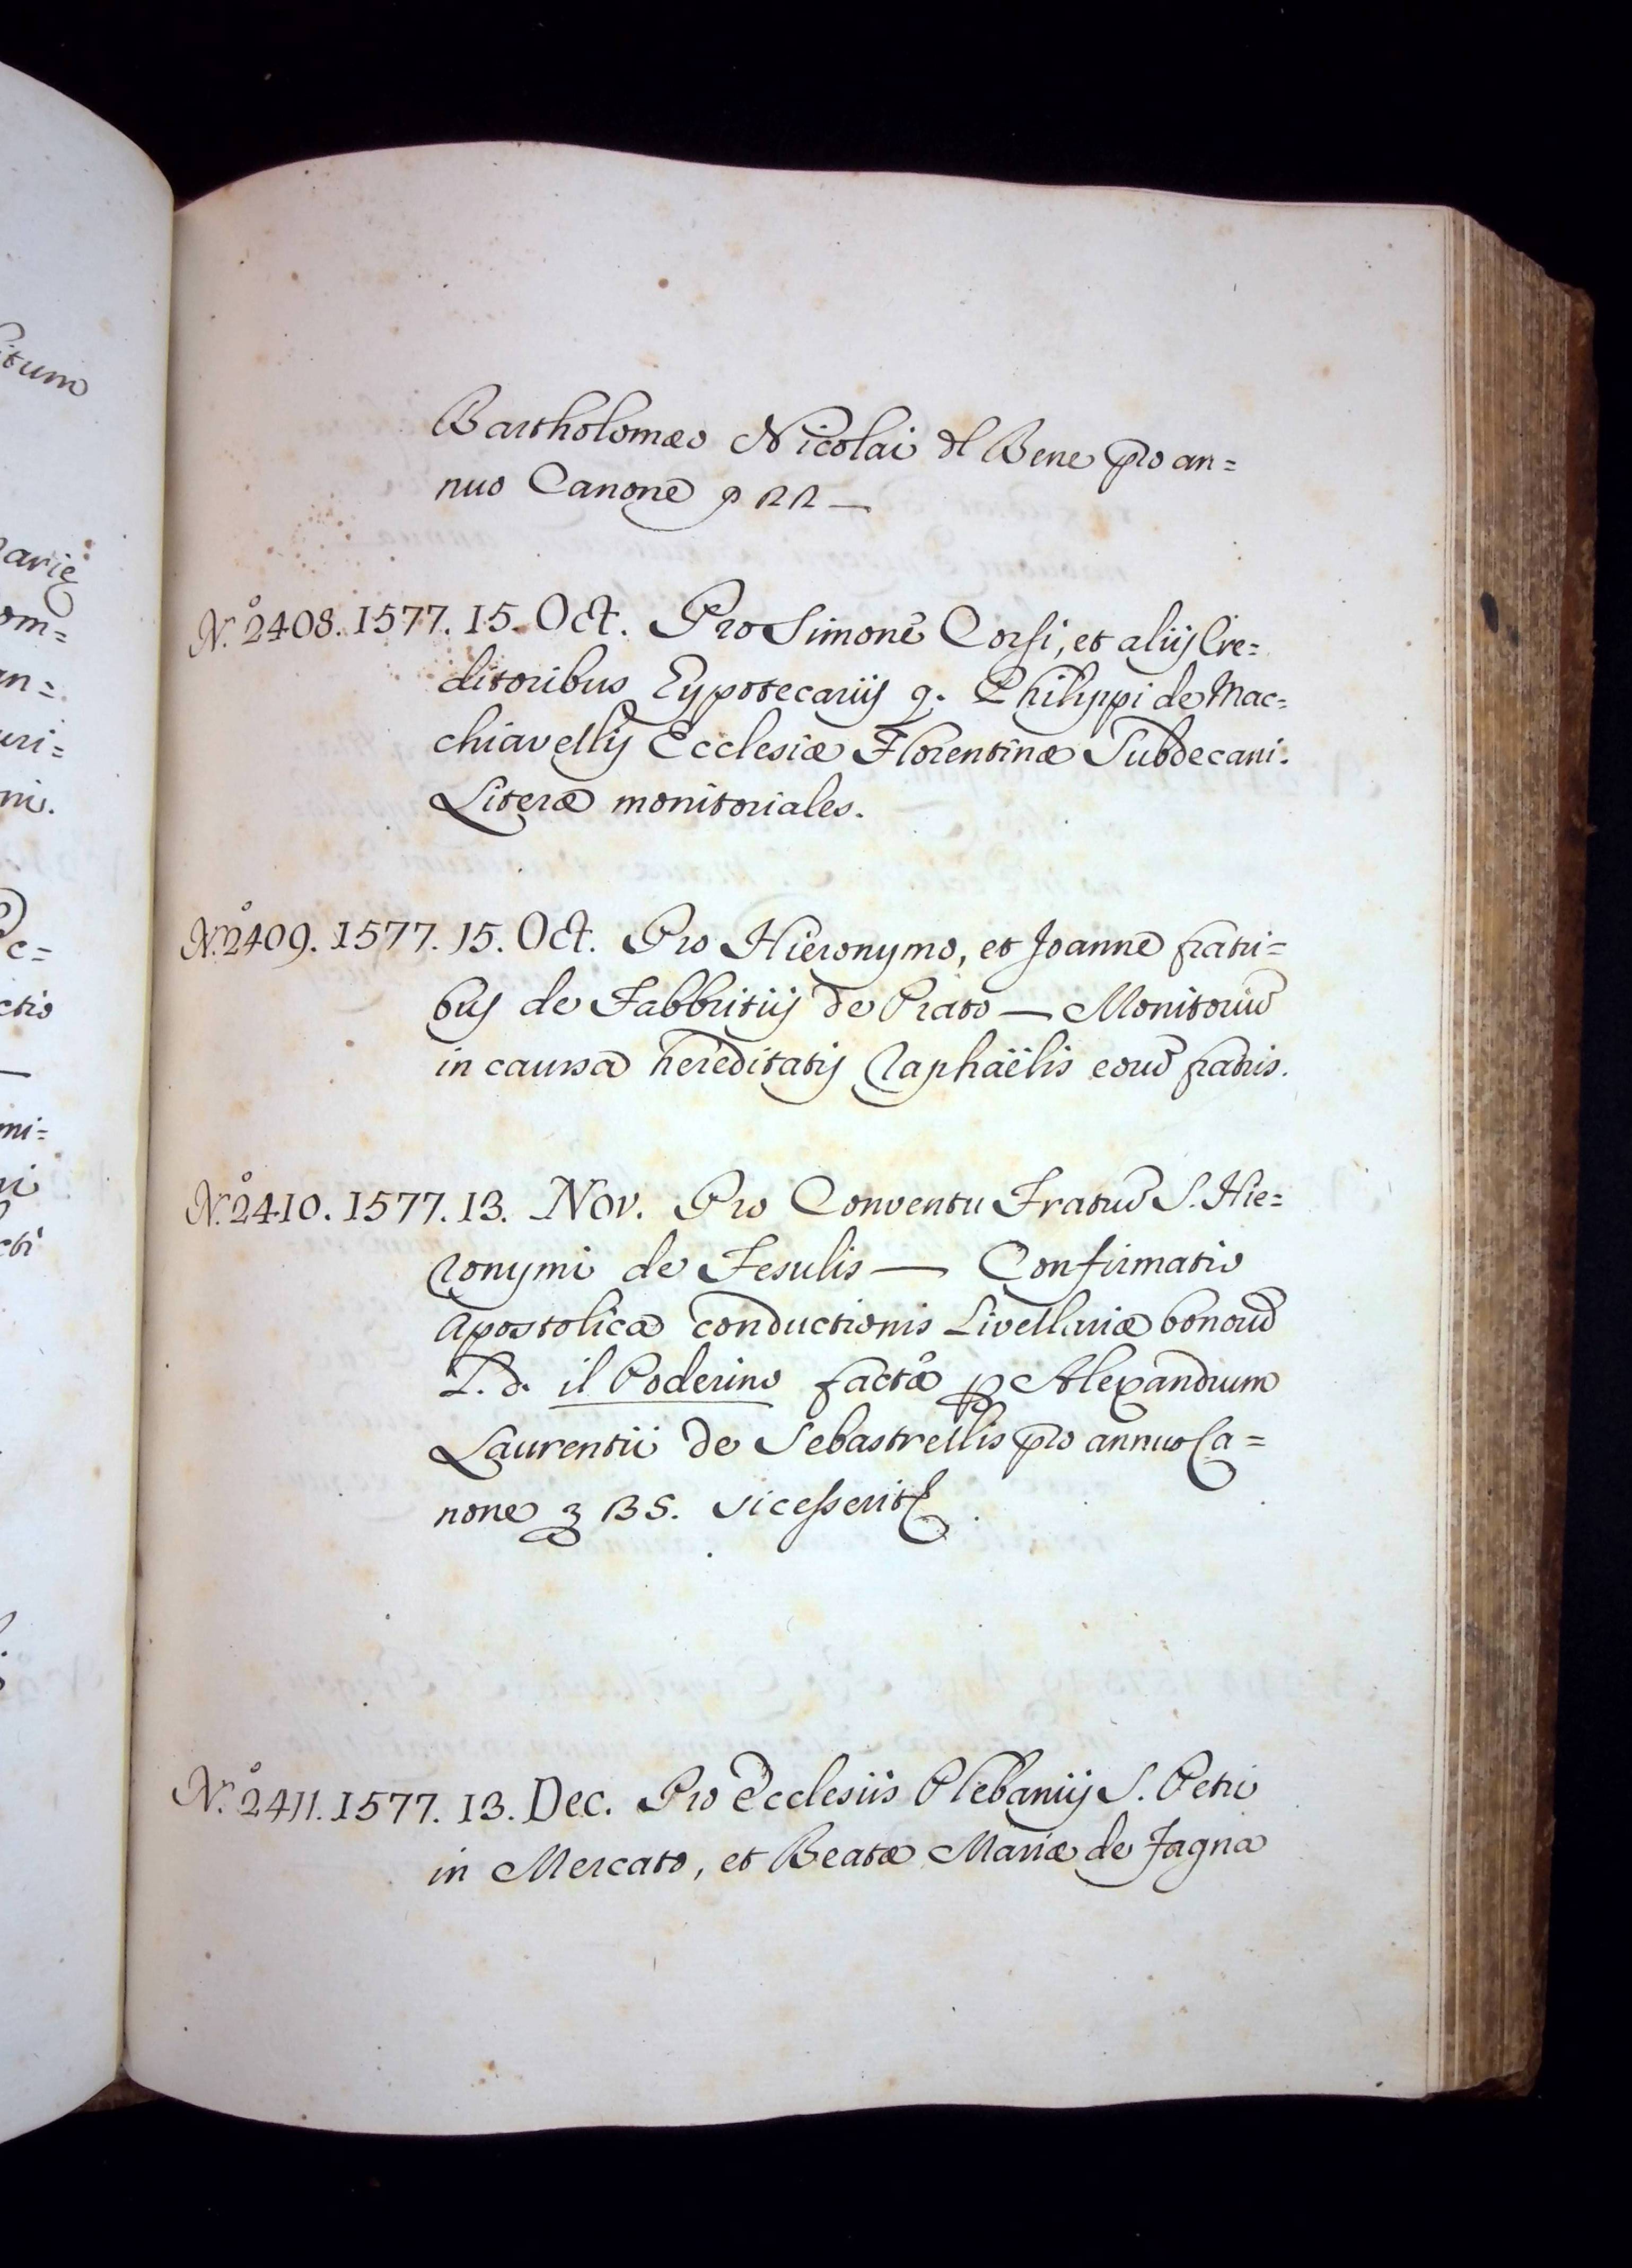 itum
Bartholomæo Nicolai dl Bene pro an=
nuo Canone
N.º 2408. 1577. 15. Oct. Pro Simone Corsi, et alijs Cre=
ditoribus Eypotecarijs q. Philippi de Mac=
chiavellis Ecclesiæ Florentinæ Subdecani.
Literæ monitoriales.
N.º 2409. 1577. 15. Oct. Pro Hieronymo, et Joanne fratri=
bus de Fabbritijs de Prato — Monitoriũ
in caussa hereditatis Raphaëlis eorũ fratris.
N.º 2410. 1577. 13. Nov. Pro Conventu Fratrũ S. Hie=
ronymi de Fesulis — Confirmatio
Apostolica conductionis Livellariæ bonorũ
L. d. il Poderino factæ p Alexandrum
Laurentii de Sebastrellis pro annuo Ca=
none
N.º 2411. 1577. 13. Dec. Pro Ecclesiis Plebanijs S. Petri
in Mercato, et Beatæ Mariæ de Fagna